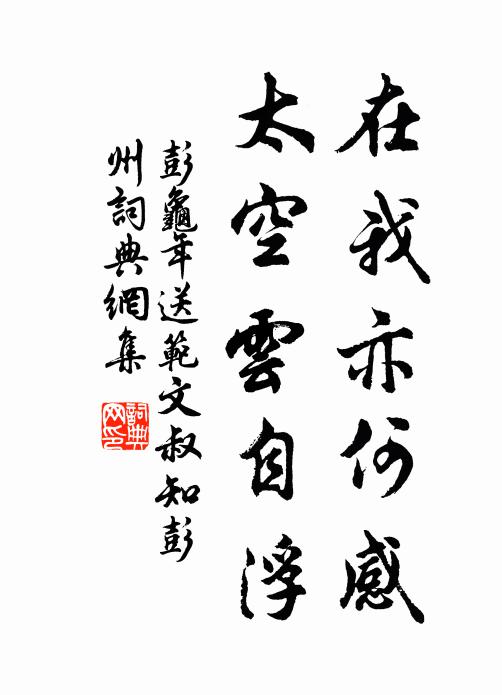 在我亦何感
太空雲自浮
彭龜年送範文叔知彭
州詞典網集
詞典
网印